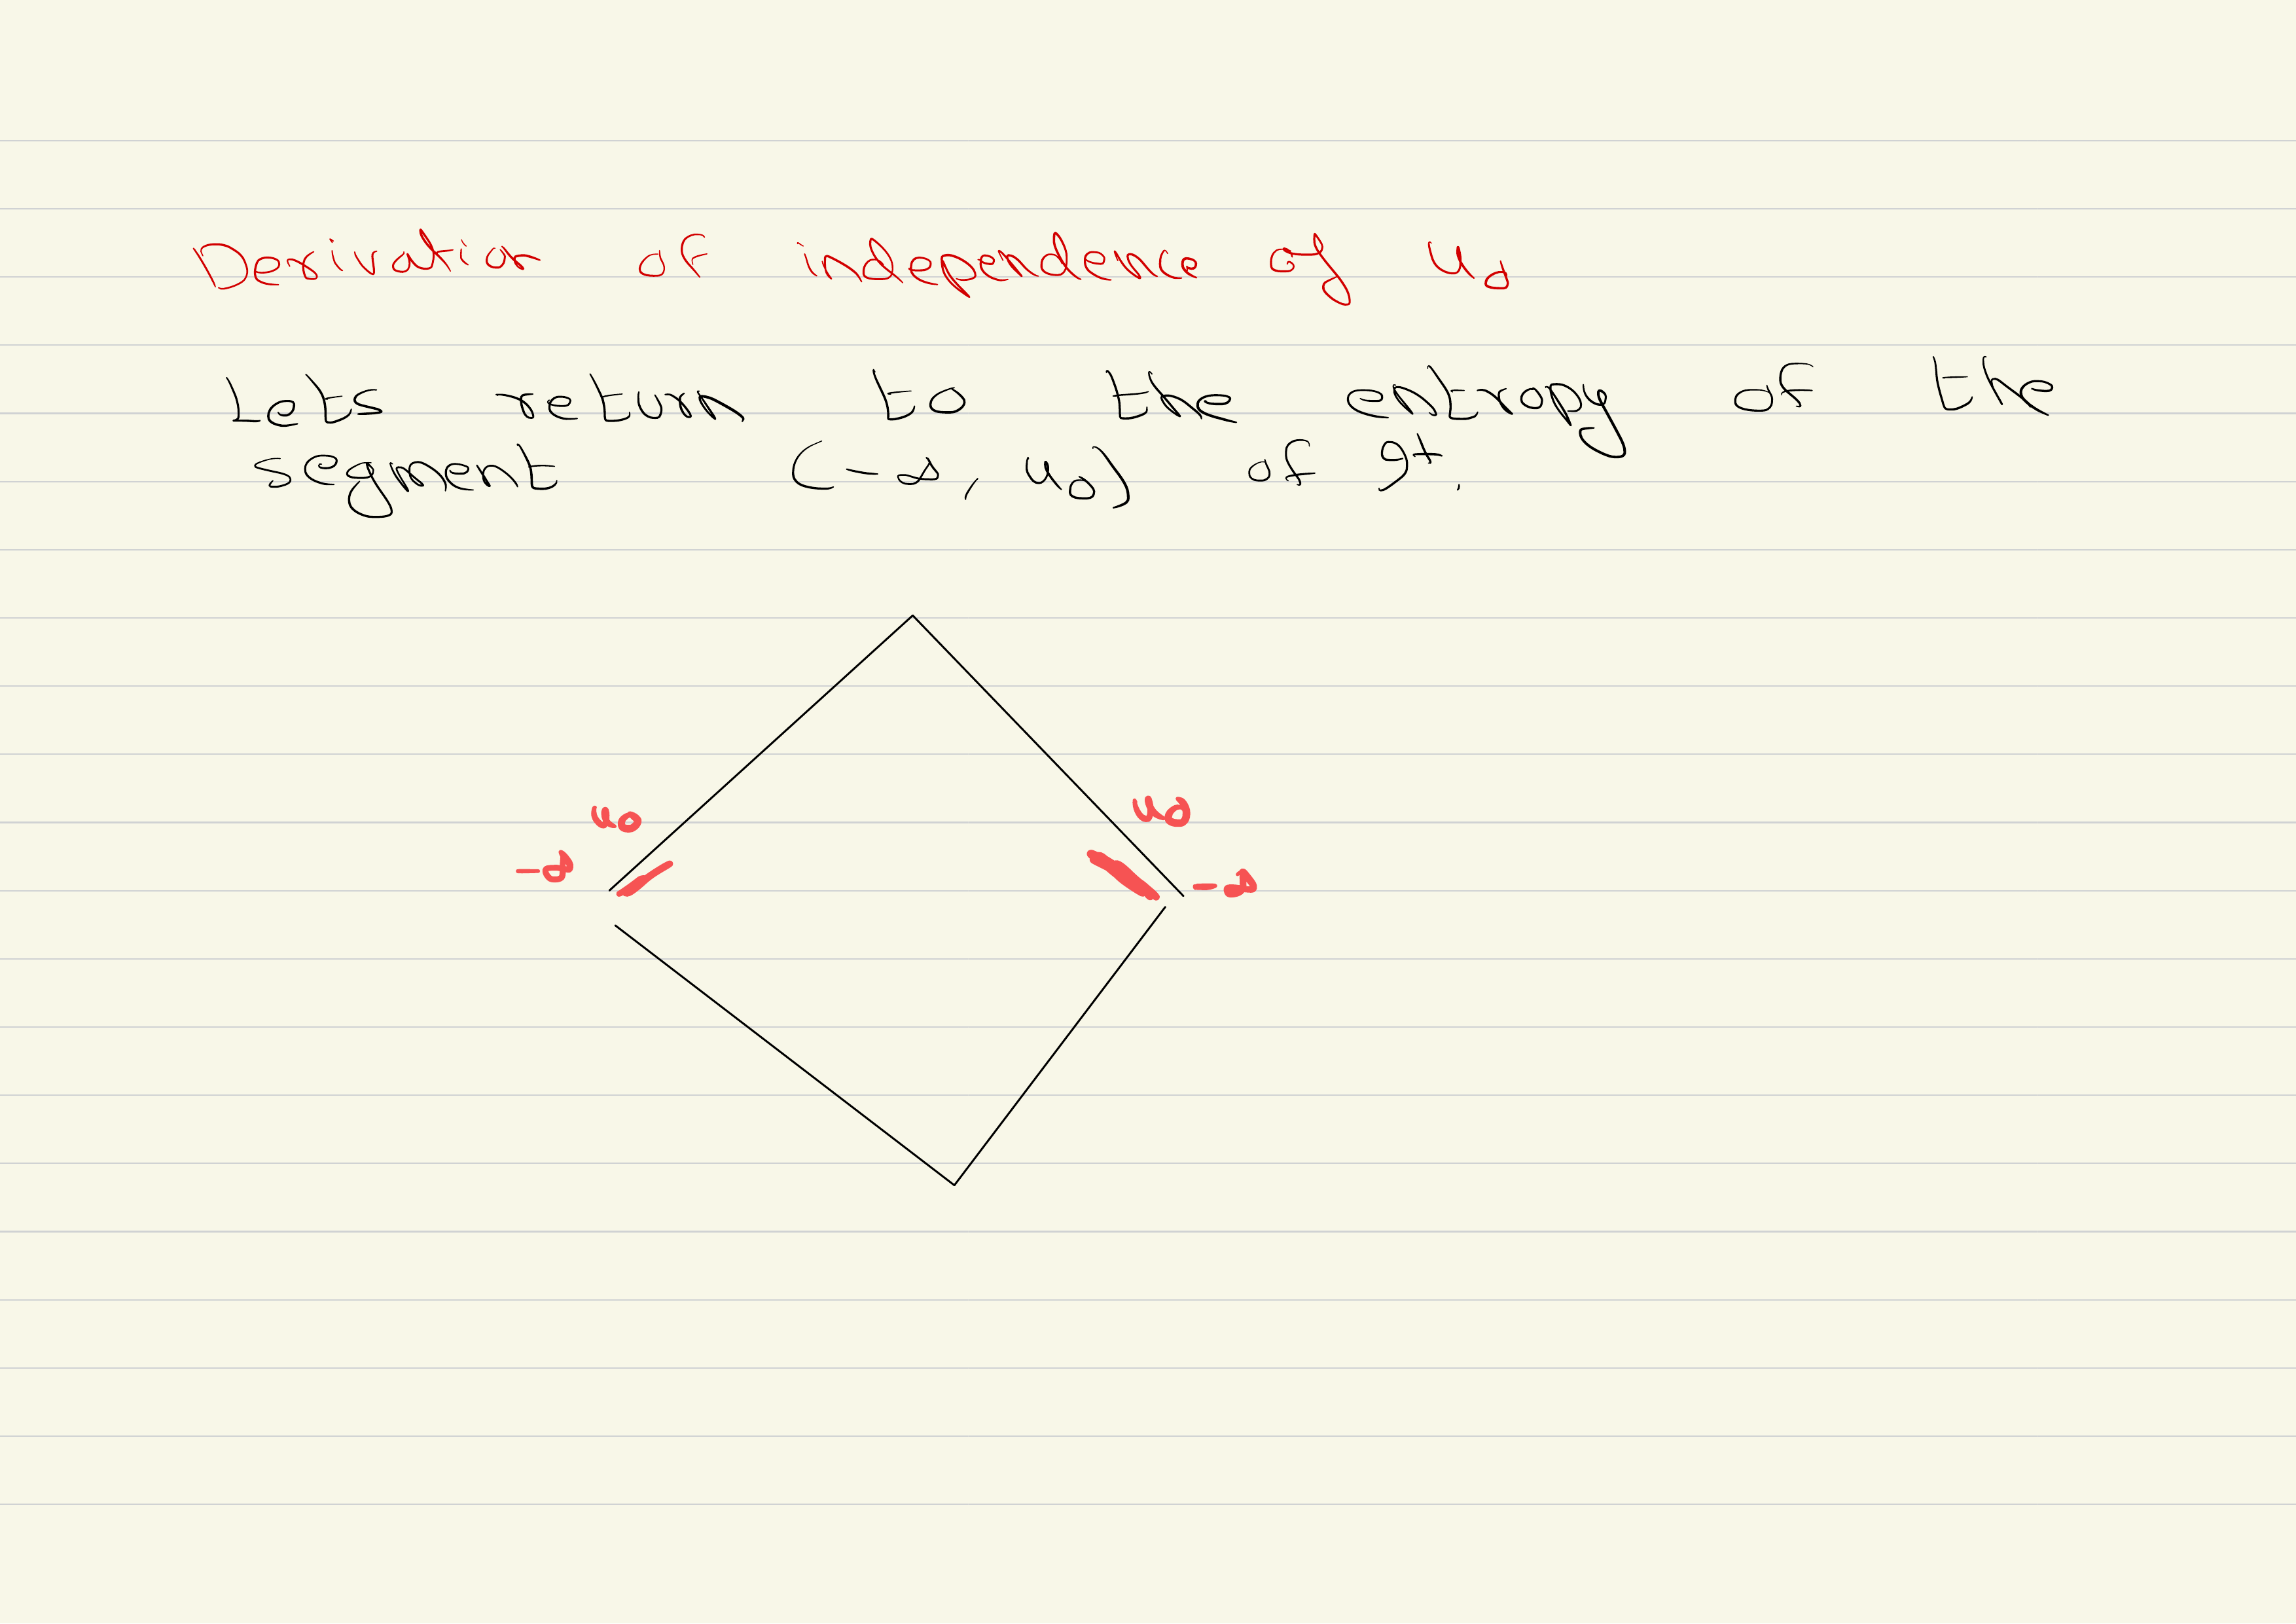 Derivation of independence of u₀
Lets return to the entropy of the
segment (-∞, u₀) of g⁺.
u₀ u₀
-∞ -∞